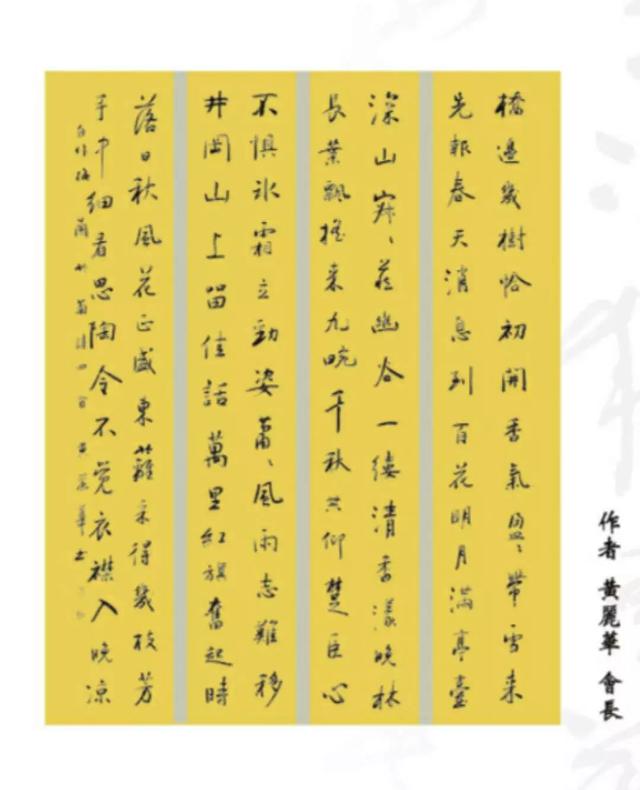 橋邊幾樹恰初開香氣盈盈帶雪来
先報春天消息到百花明月滿亭臺
深山寂寂蔭幽谷一縷清香漾晚林
長葉飄搖来九畹千秋共仰楚臣心
不惧冰霜立勁姿蕭蕭風雨志難移
井岡山上留佳話萬里紅旗奮起時
落日秋風花正盛東籬采得幾枝芳
手中細看思陶令不觉衣襟入晚凉
自作梅蘭竹菊詩四首黄麗華書
作者 黃麗華 會長